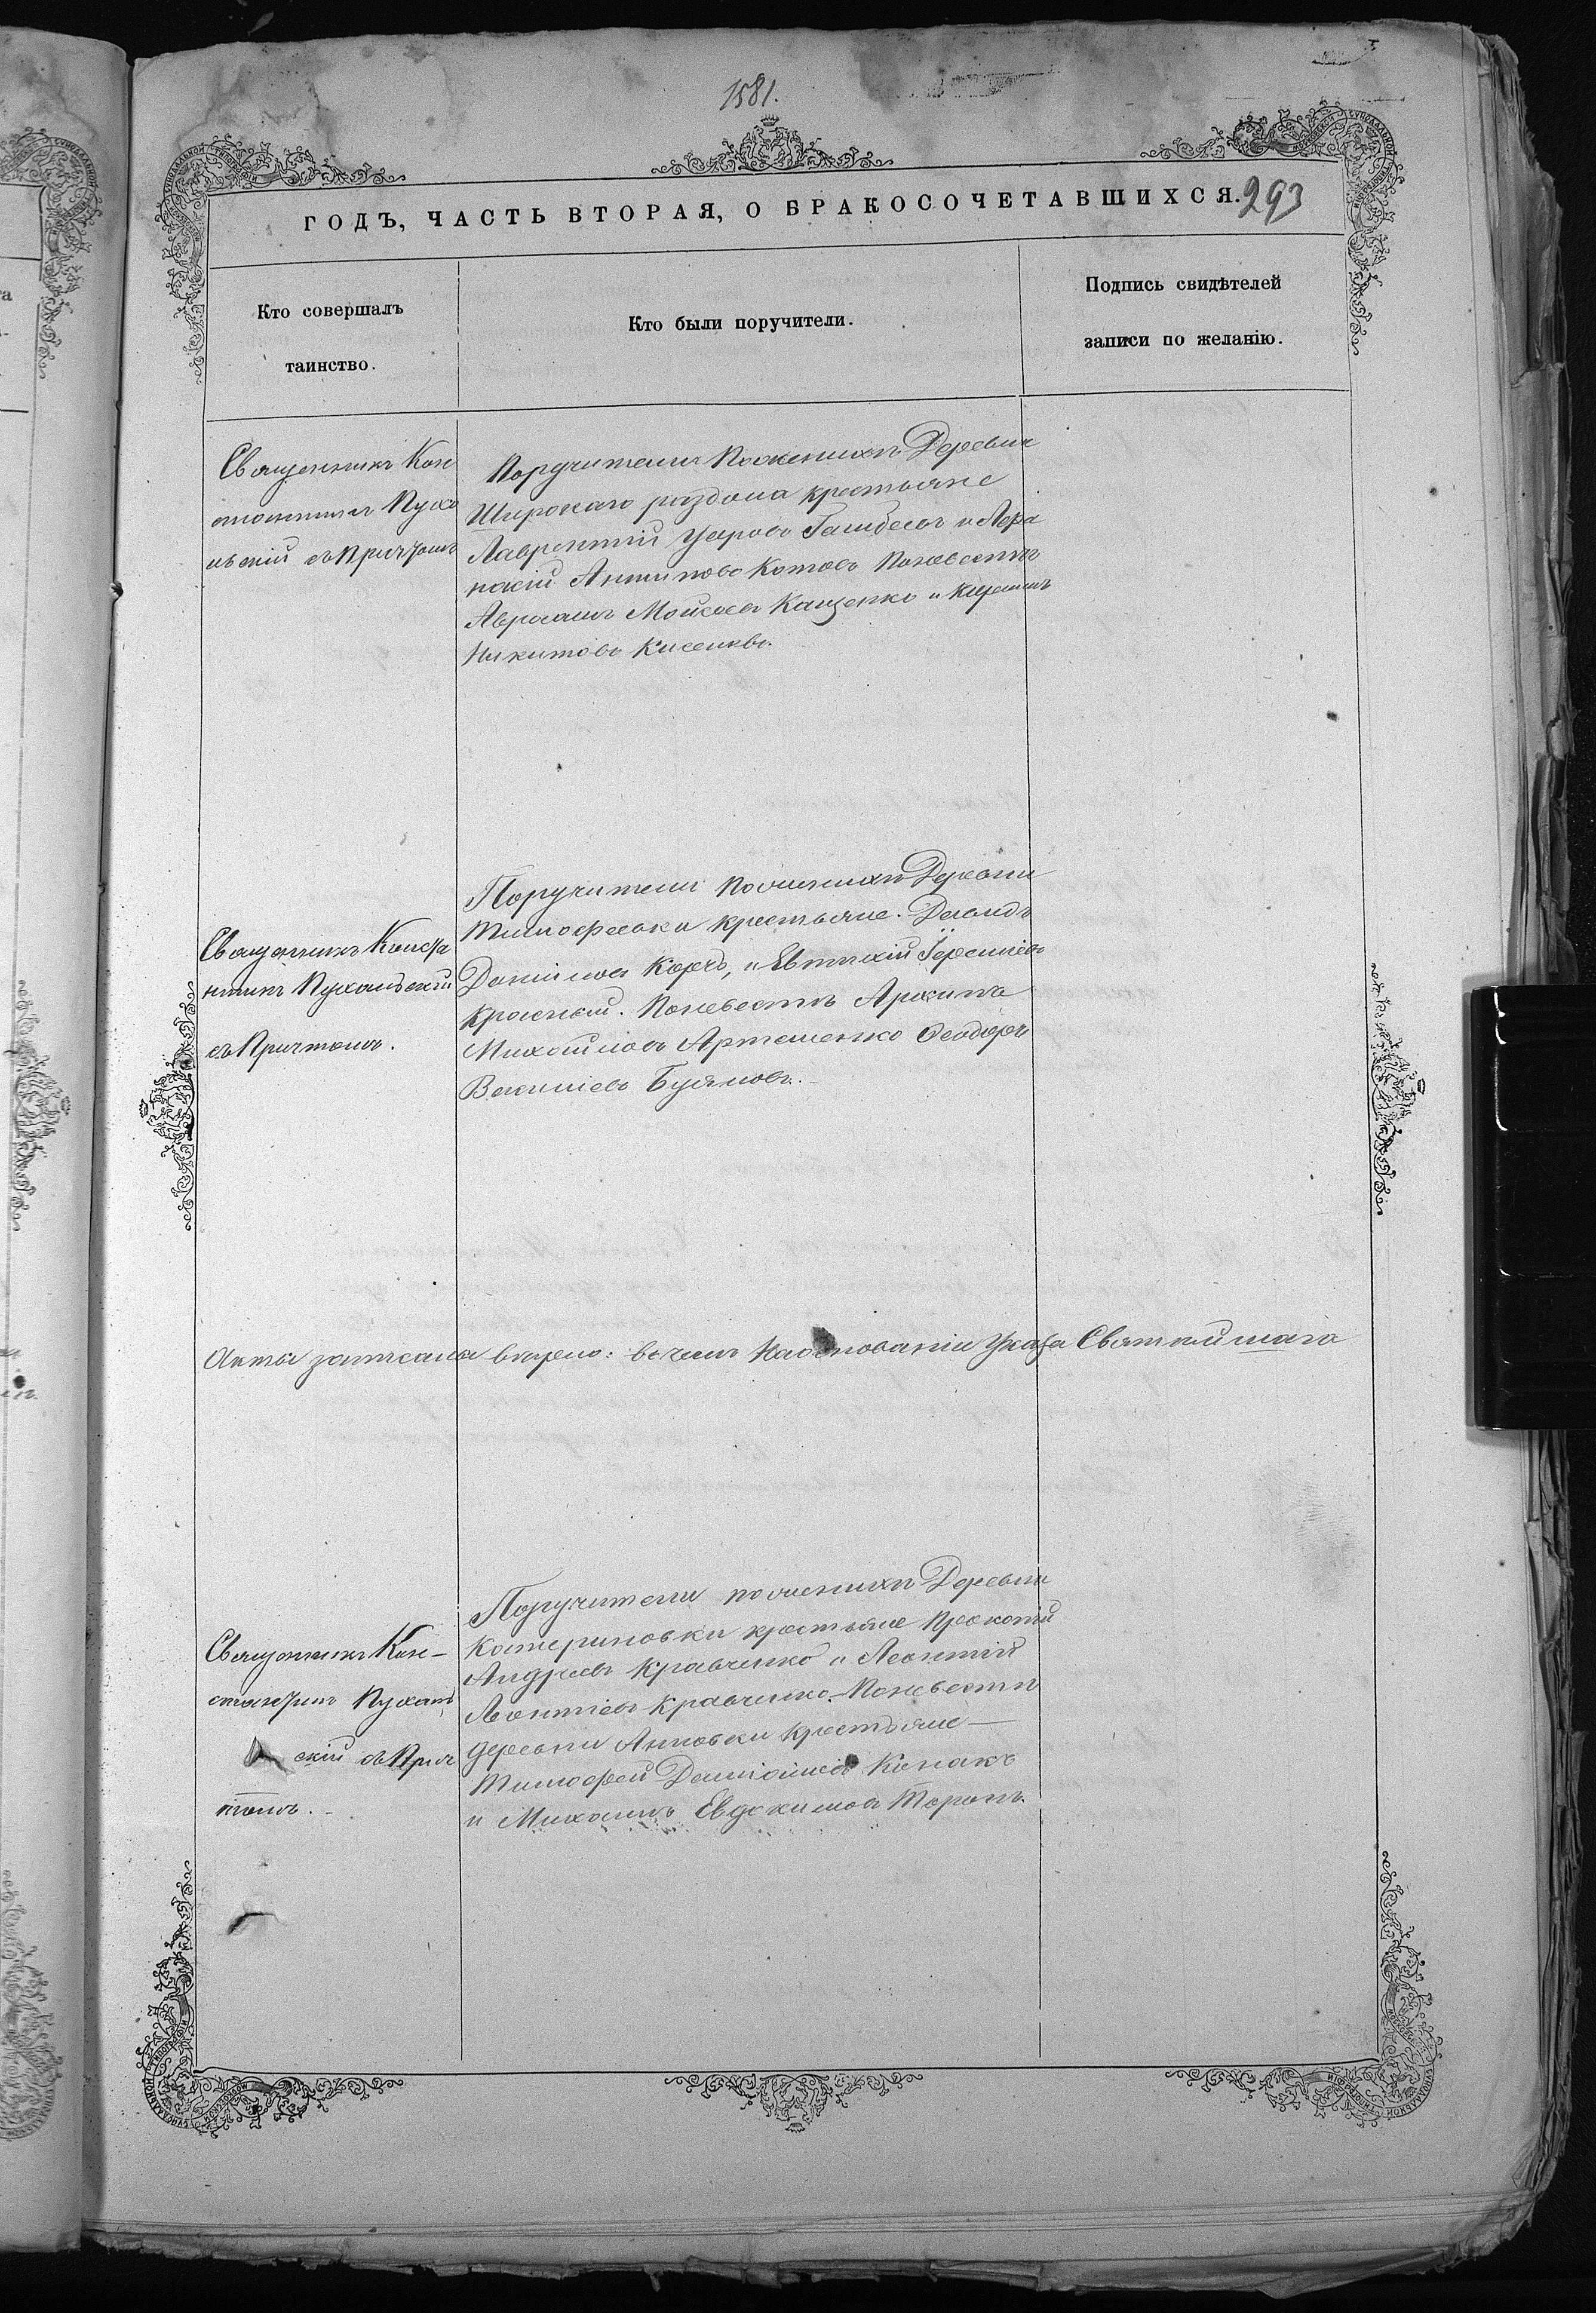 1581.
ГОДЪ, ЧАСТЬ ВТОРАЯ, О БРАКОСОЧЕТАВШИХСЯ.
293
Кто совершалъ
таинство.
Кто были поручители.
Подпись свидѣтелей
записи по желанію.
Священникъ Кон
стантинъ Пуха
льскій съ Причтомъ
Поручители По женихѣ Деревни
Широкаго раздола крестьяне
Лаврентій Уваровъ и Аѳа
насій Антиповъ Котовъ По невестѣ
Авраамъ Моисеевъ Кащенко и
Никитовъ
Священникъ Конста
нтинъ Пухальскій
съ Причтомъ.
Поручители По женихѣ Деревни
Тимофеевки крестьяне. Давидъ
Даніиловъ Корчъ, и Евтихій Іереміевъ
Красный. По невестѣ Архипъ
Михайловъ Артеменко Ѳеодоръ
Буяновъ.
Акты записаны верно: въ чемъ На основаніи Указа Святейшаго
Священникъ Кон-
стантинъ Пухаль
скій съ Прич
томъ.
Поручители по женихѣ Деревни
Катериновки крестьяне Прокопій
Андреевъ Кравченко и Леонтій
Леонтіевъ Кравченко - По невестѣ
деревни Анновки Крестьяне -
Тимофей Даміановъ Кинакъ
и Михаилъ Евдокимовъ Торопъ.